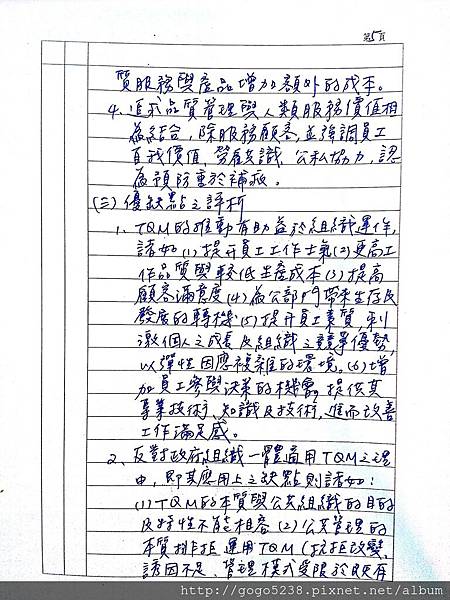 第5頁
質服務與產品增加額外的成本。
4. 追求品質管理與人類服務價值相
為結合,除服務顧客,並強調員工
自我價值,勞雇共識,公私協力,認
為預防重於補救。
(三)優缺點之評析
1. TQM的推動有助益於組織運作,
諸如(1)提升員工工作士氣(2)更高工
作品質與較低生產成本(3)提高
顧客滿意度(4)為公部門帶來生存及
發展的轉機(5)提升員工素質,利
激個人之成長及組織之競爭優勢,
以彈性因應複雜的環境。(6)增
加員工參與決策的機會,提供其
專業技術、知識及技術,進而改善
工作滿足感。
2、反對政府組織一體適用TQM之理
由,即其應用上之缺點則諸如:
(1)TQM的本質與公共組織的目的
及特性不能相容(2)公共管理的
本質排拒運用TQM(抗拒改變、
誘因不足、管理模式受限於既有
http://gogo5238.pixnet.net/album